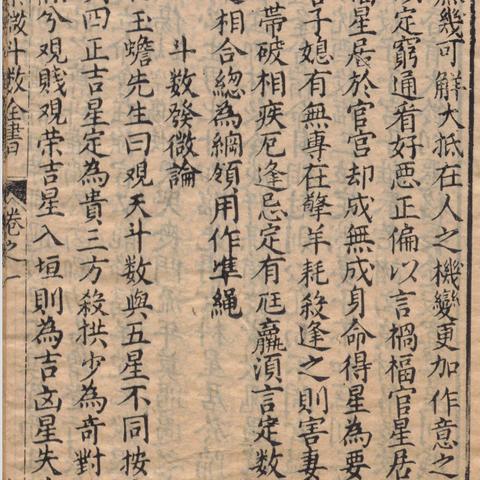 無幾可觧大抵在人之機變更加作意之
定窮通看好惡正偏以言禍福官星居
福星居於官宮却成無成身命得星為要
子媳有無專在擎羊耗殺逢之則害妻
帶破相疾厄逢忌定有尫羸須言定數
之相合總為綱領用作準繩
斗數發微論
玉蟾先生曰觀天斗數與五星不同按
四正吉星定為貴三方殺拱少為奇對
兮觀賤觀荣吉星入垣則為吉凶星失
微斗数全書 卷之一